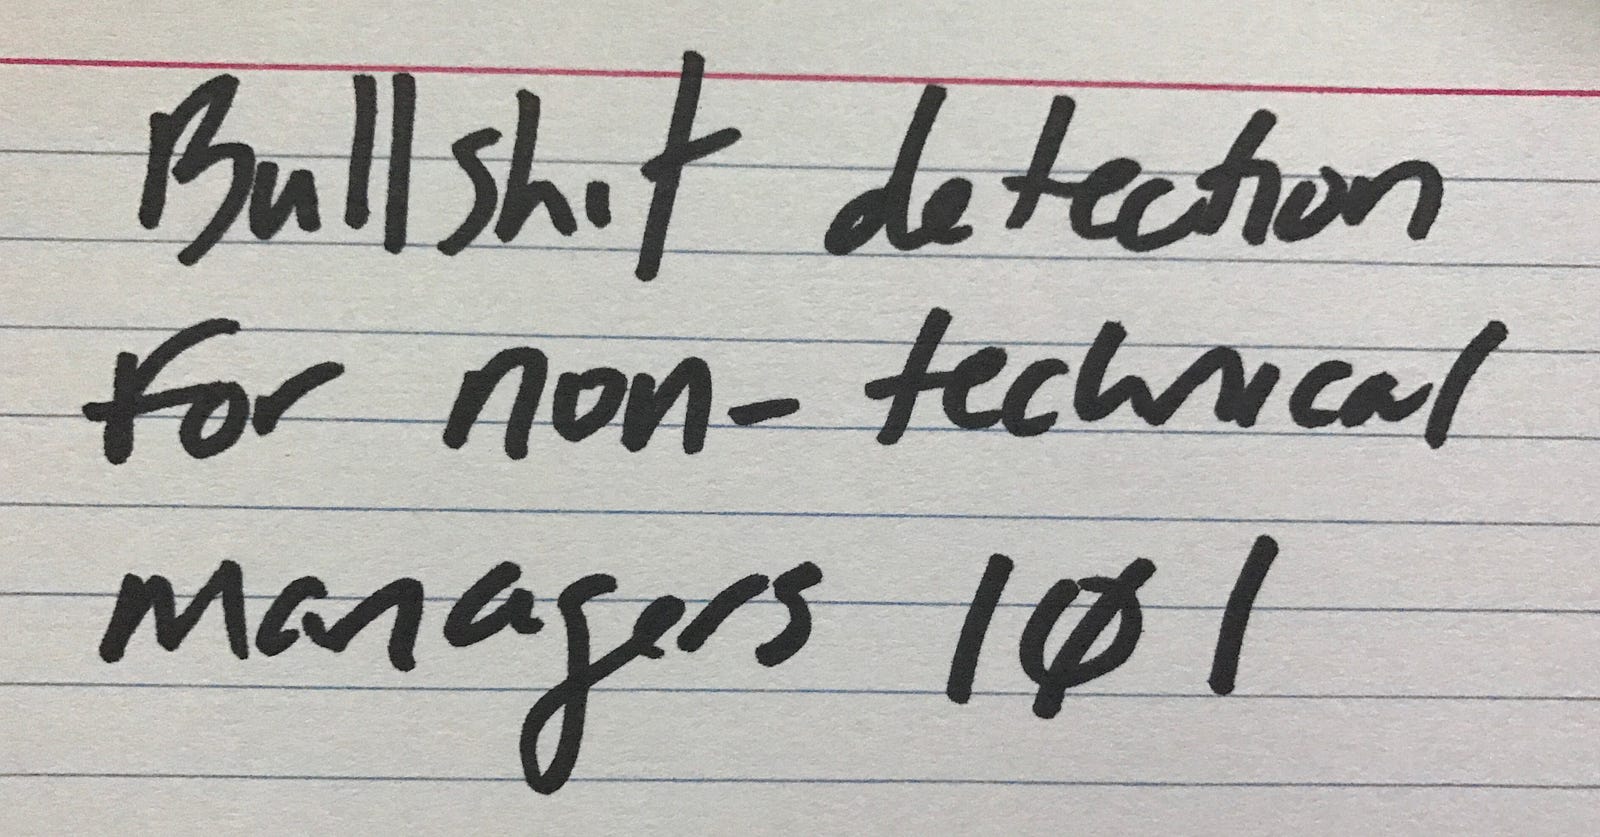 Bullshit detection
for non-technical
managers 101